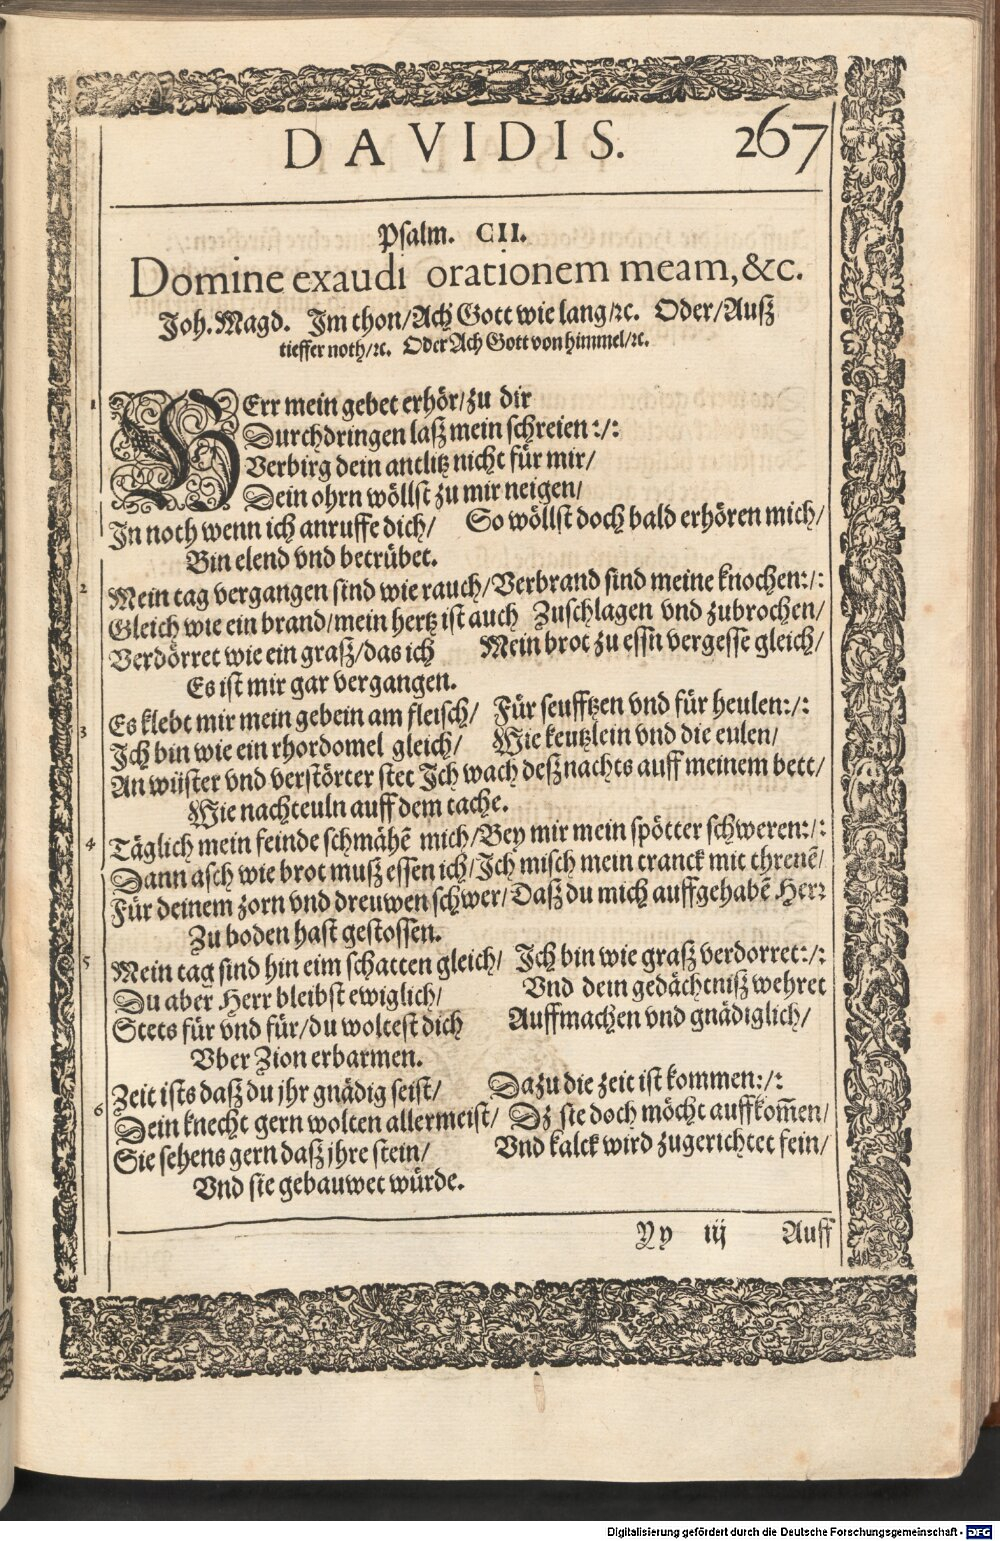 DAVIDIS. 267
Psalm. CII.
Domine exaudi orationem meam, &c.
Joh. Magd. Im thon/Ach Gott wie lang/ꝛc. Oder/Auß
tieffer noth/ꝛc. Oder Ach Gott von himmel/ꝛc.
1 HErr mein gebet erhör/zu dir
Durchdringen laß mein schreien:/:
Verbirg dein antlitz nicht für mir/
Dein ohrn wöllst zu mir neigen/
In noth wenn ich anruffe dich/ So wöllst doch bald erhören mich/
Bin elend vnd betrübet.
2 Mein tag vergangen sind wie rauch/Verbrand sind meine knochen:/:
Gleich wie ein brand/mein hertz ist auch Zuschlagen vnd zubrochen/
Verdörret wie ein graß/das ich Mein brot zu essn vergesse gleich/
Es ist mir gar vergangen.
3 Es klebt mir mein gebein am fleisch/ Für seufftzen vnd für heulen:/:
Ich bin wie ein rhordomel gleich/ Wie keutzlein vnd die eulen/
An wüster vnd verstörter stet Ich wach deß nachts auff meinem bett/
Wie nachteuln auff dem tache.
4 Täglich mein feinde schmähē mich/Bey mir mein spötter schweren:/:
Dann asch wie brot muß essen ich/Ich misch mein tranck mit threnē/
Für deinem zorn vnd dreuwen schwer/Daß du mich auffgehabē Herr
Zu boden hast gestossen.
5 Mein tag sind hin eim schatten gleich/ Ich bin wie graß verdorret:/:
Du aber Herr bleibst ewiglich/ Vnd dein gedächtniß wehret
Stets für vnd für/du woltest dich Auffmachen vnd gnädiglich/
Vber Zion erbarmen.
6 Zeit ists daß du jhr gnädig seist/ Dazu die zeit ist kommen:/:
Dein knecht gern wolten allermeist/ Dz sie doch möcht auffkom̄en/
Sie sehens gern daß jhre stein/ Vnd kalck wird zugerichtet fein/
Vnd sie gebauwet würde.
Yy iij Auff
Digitalisierung gefördert durch die Deutsche Forschungsgemeinschaft - DFG